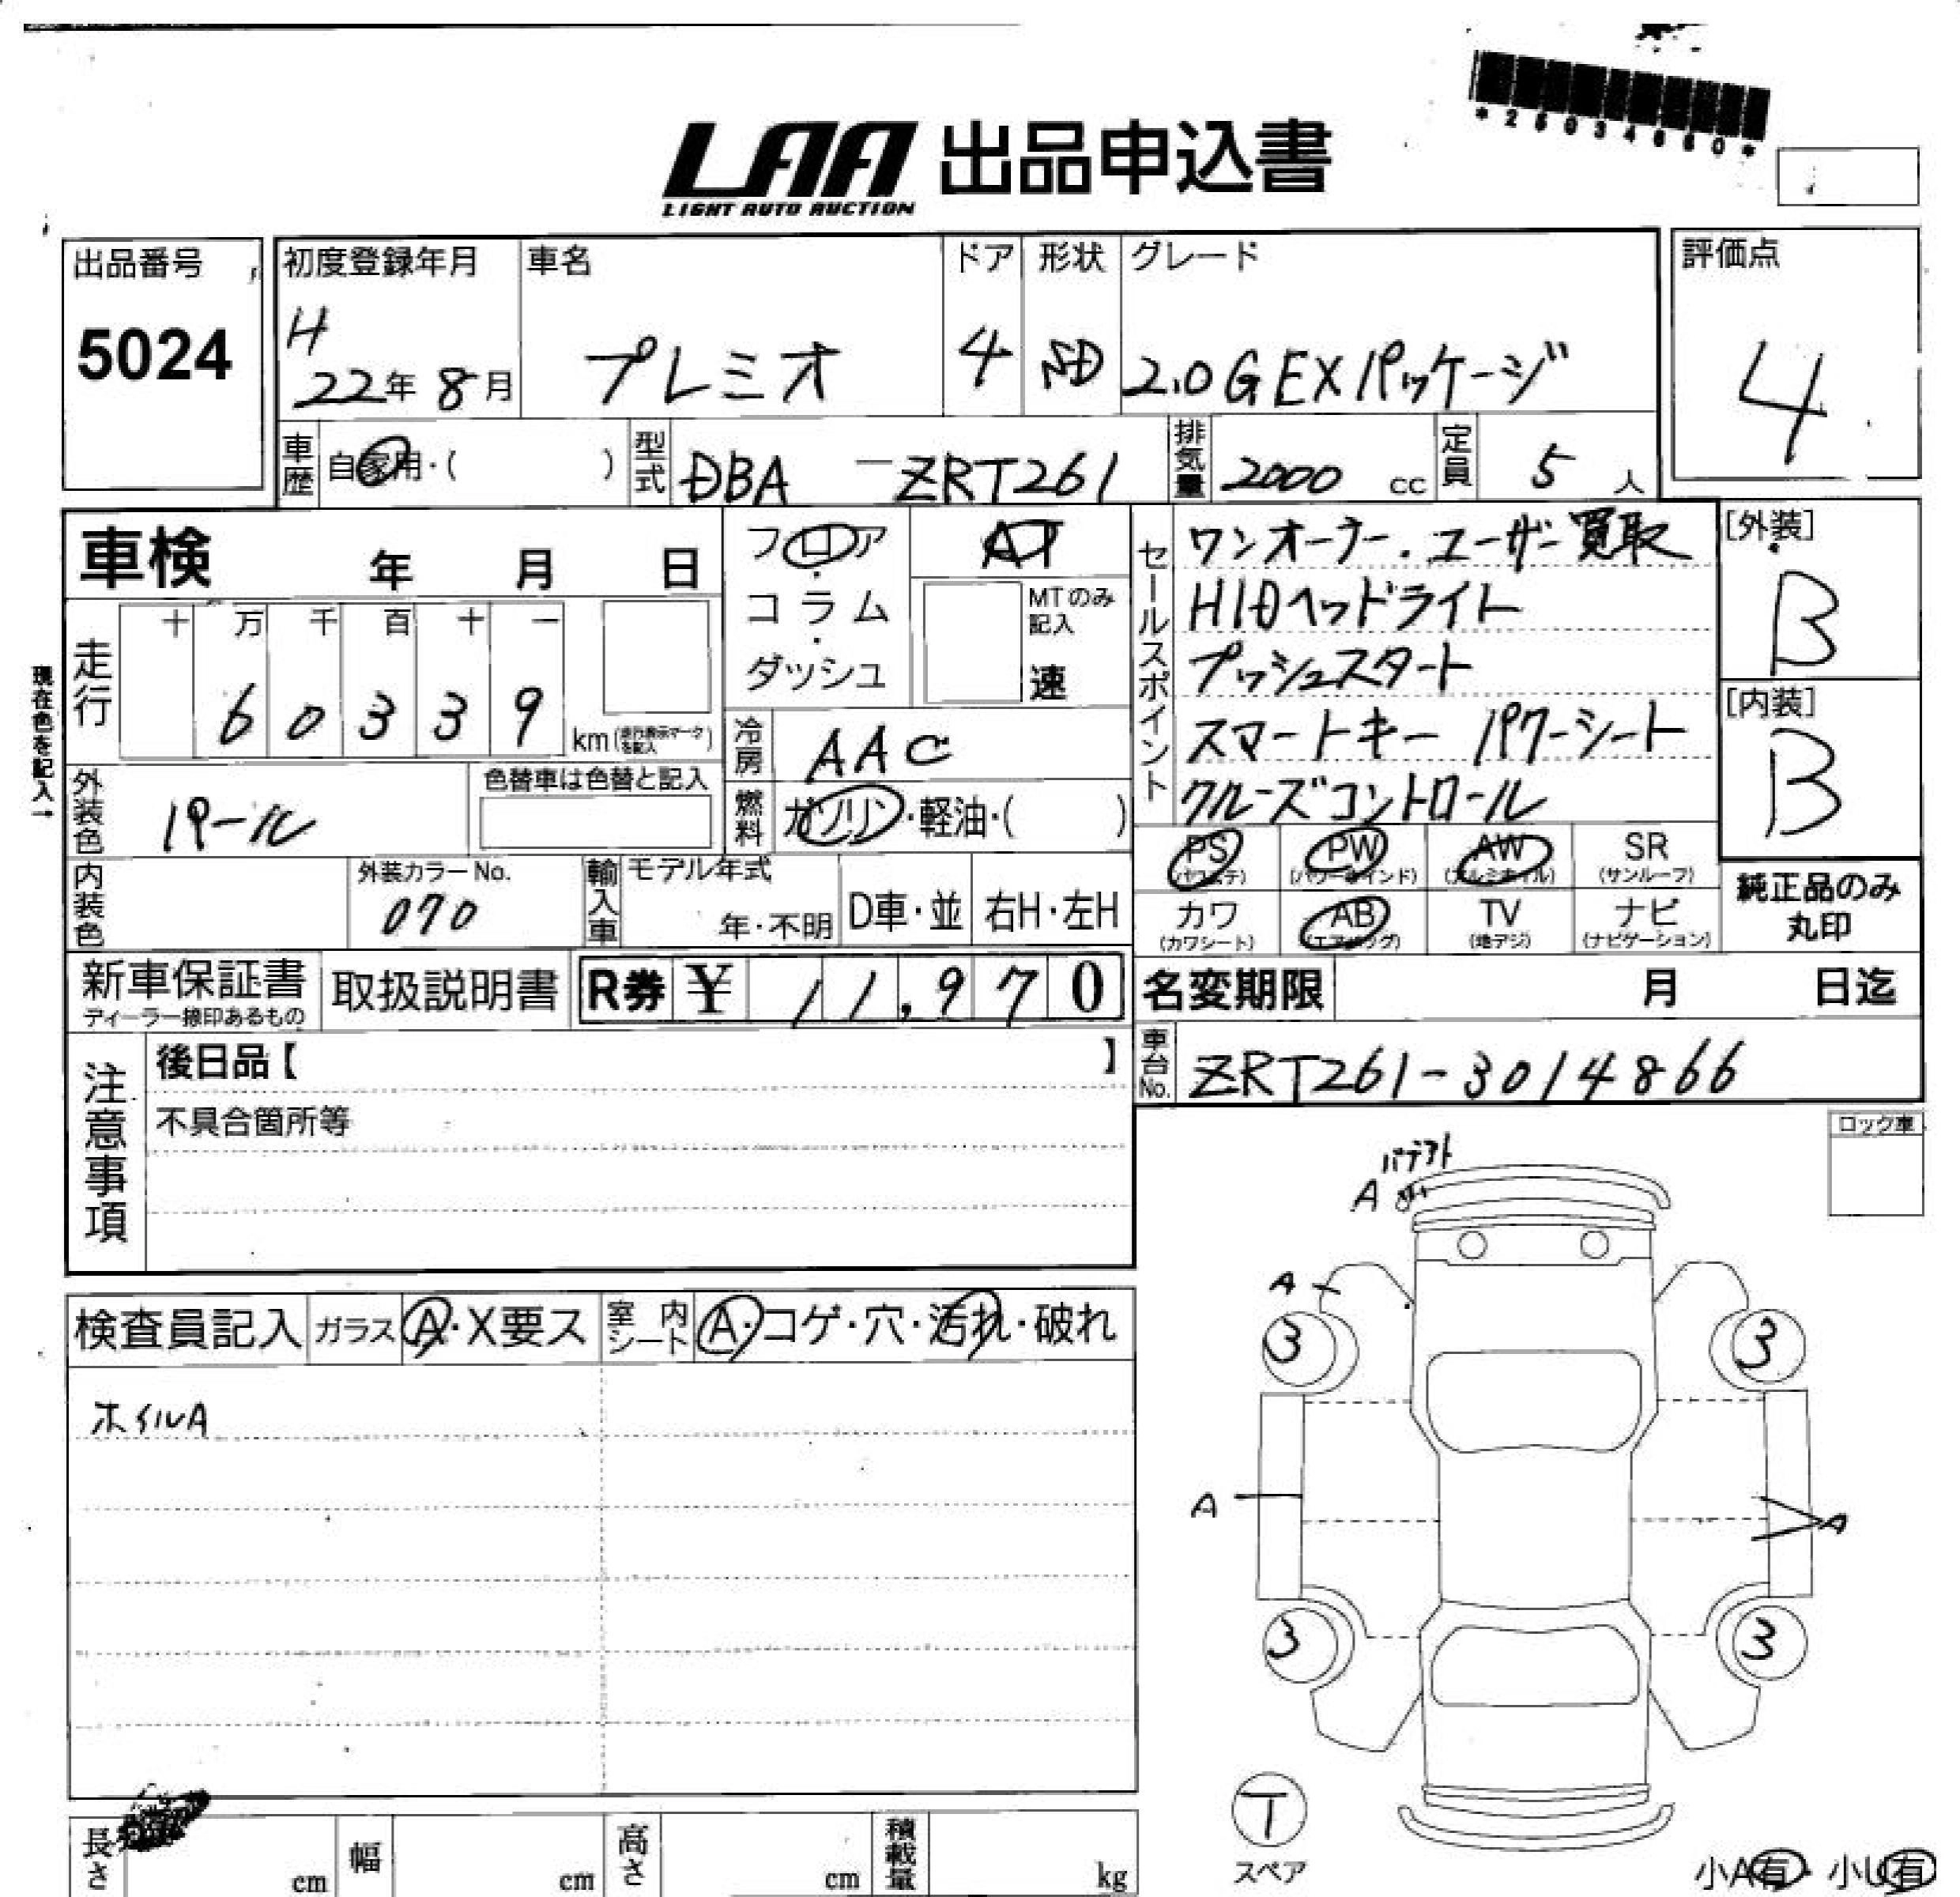 *25034660*
LAA 出品申込書
LIGHT AUTO AUCTION
出品番号
5024
初度登録年月
H
22年 8月
車名
プレミオ
ドア
4
形状
SD
グレード
2.0G EXパッケージ
評価点
4
車歴
自家用・( )
型式
DBA -ZRT261
排気量
2000 cc
定員
5 人
車検 年 月 日
フロア
・
コラム
・
ダッシュ
AT
MTのみ
記入
速
セールスポイント
ワンオーナー.ユーザー買取
HIDヘッドライト
プッシュスタート
スマートキー パワーシート
クルーズコントロール
[外装]
B
[内装]
B
現在色を記入→
走行
十 万 千 百 十 一
6 0 3 3 9
km(走行表示マークを記入)
冷房
AAC
外装色
パール
色替車は色替と記入
燃料
ガソリン・軽油・( )
PS
(パワステ)
PW
(パワーウインド)
AW
(アルミホイル)
SR
(サンルーフ)
カワ
(カワシート)
AB
(エアバッグ)
TV
(地デジ)
ナビ
(ナビゲーション)
純正品のみ
丸印
内装色
外装カラーNo.
070
輸入車
モデル年式
年・不明
D車・並
右H・左H
新車保証書
ディーラー捺印あるもの
取扱説明書
R券 ¥ 11,970
名変期限 月 日迄
車台No.
ZRT261-3014866
注意事項
後日品【 】
不具合箇所等
ロック車
パテアト
A
A
3
3
A
A
3
3
検査員記入
ガラス
A・X要ス
室内シート
A・コゲ・穴・汚れ・破れ
ホイルA
T
スペア
小A有・小U有
長さ
cm
幅
cm
高さ
cm
積載量
kg